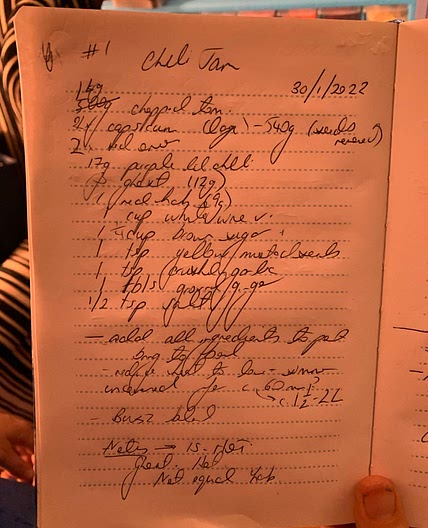 #1
Chili Jam
30/1/2022
chopped tom.
2 capsicum (lge) - 540g (seeds removed)
2 red onion
17g purple chilli
ghost (12g)
1 red hab (9g)
1 cup white wine v.
1 1/4 cup brown sugar
1 tsp yellow mustard seeds
1 tsp crushed garlic
1 tbls ground g-ge
1/2 tsp salt
- add all ingredients to pot
bring to boil
- reduce heat to low - simmer
uncovered for c. 60 min?
→ c. 1 1/2 - 2L
- Buzz
Notes → is hot
Not equal